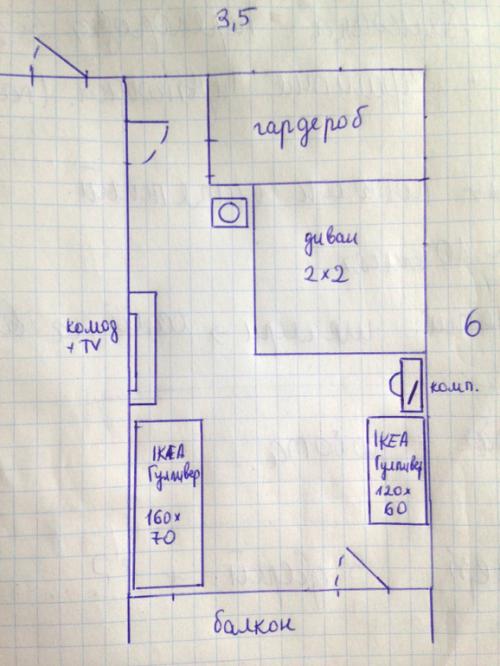 3,5
гардероб
диван
2×2
6
комод
+ TV
комп.
IKEA
Гулливер
160×
70
IKEA
Гулливер
120×
60
балкон